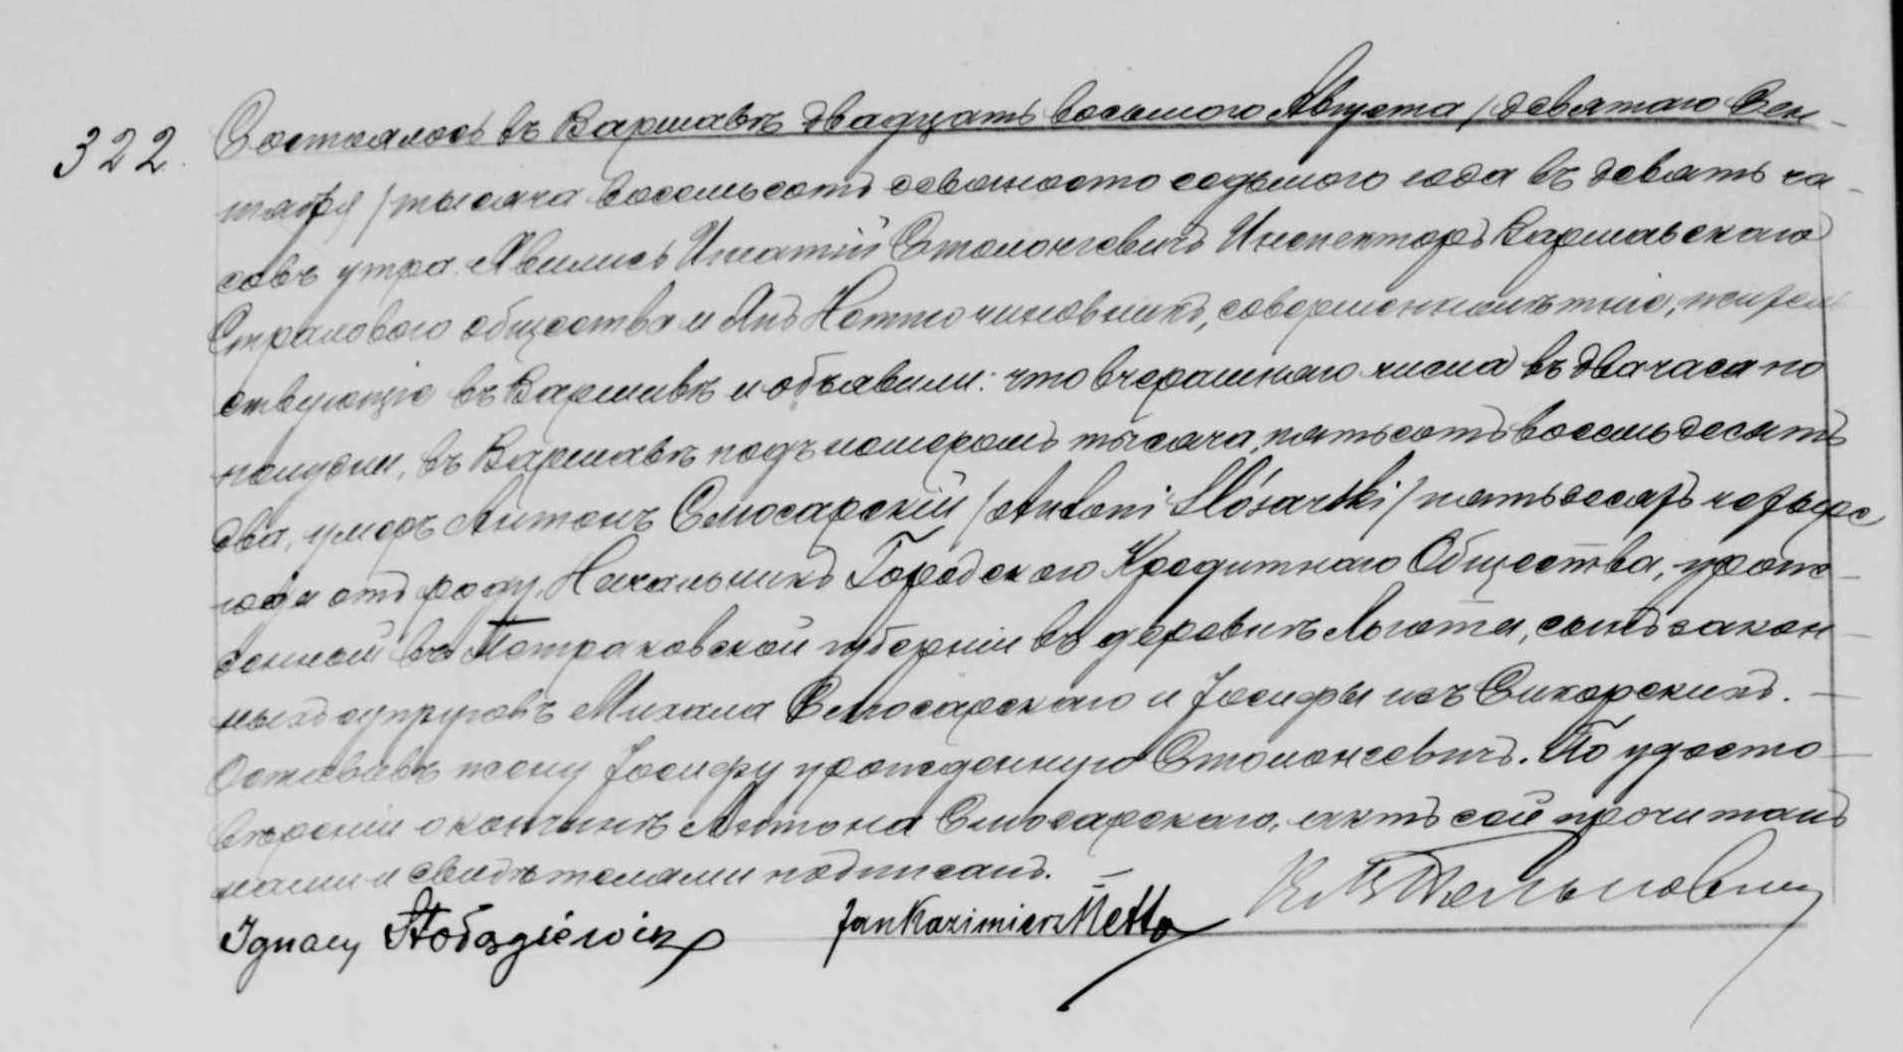 322. Состоялось въ Варшавѣ двадцать восьмого Августа / девятаго Сен-
тября / тысяча восемьсотъ девяносто седьмого года въ девять ча-
совъ утра. Явились Игнатій Столонгевичъ Инспекторъ Варшавскаго
Страховаго общества и Янъ Нетто чиновникъ, совершеннолѣтніе, житель-
ствующіе въ Варшавѣ и объявили: что вчерашняго числа въ два часа по
полудни, въ Варшавѣ подъ номеромъ тысяча пятьсотъ восемьдесятъ
два, умеръ Антонъ Слюсарскій / Antoni Slósarski / пятьдесятъ четыре
года отъ роду, Начальникъ Городского Кредитнаго Общества, урож-
денный въ Петраковской губерніи въ деревнѣ Льгота, сынъ закон-
ныхъ супруговъ Михала Слюсарскаго и Іосифы изъ Сикорскихъ. —
Оставивъ жену Іосифу урожденную Столонгевичъ. По удосто-
вѣреніи о кончинѣ Антона Слюсарскаго, актъ сей прочитанъ
нами и свидѣтелями подписанъ. —
Ignacy Jan Kazimierz Netto